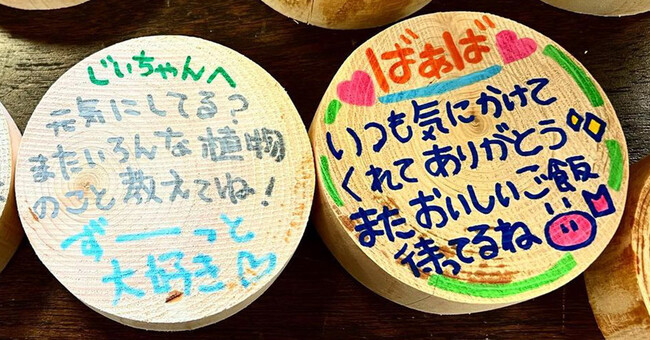 じいちゃんへ
元気にしてる?
またいろんな植物
のこと教えてね!
ずーーっと
大好き♡
ばぁば
いつも気にかけて
くれてありがとう
またおいしいご飯
待ってるね